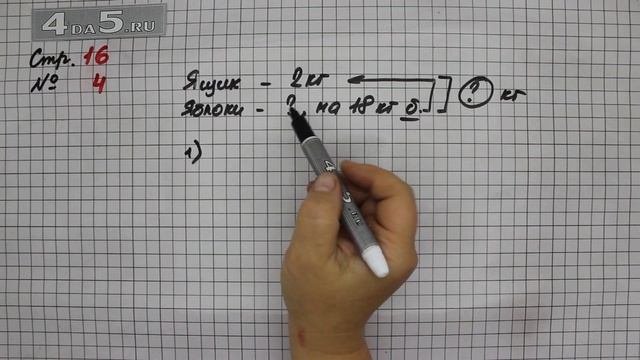 4DA5.RU
Стр. 16
№ 4
Ящик - 2 кг
Яблоки - ?, на 18 кг б. ? кг
1)